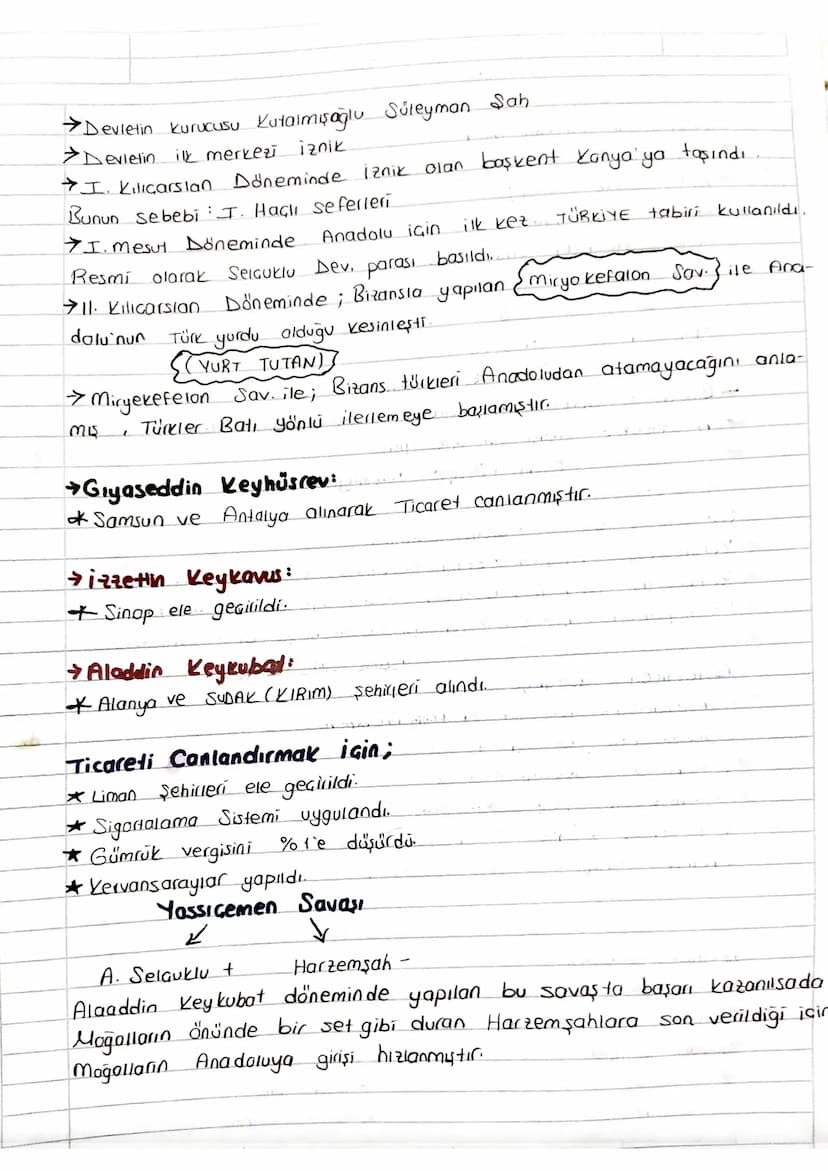 →Devletin kurucusu Kutalmışoğlu Süleyman Şah
→Devletin ilk merkezi iznik
→I. Kılıcarslan Döneminde iznik olan başkent Konya'ya taşındı.
Bunun sebebi: I. Haçlı seferleri
→I.mesut Döneminde Anadolu için ilk kez TÜRKİYE tabiri kullanıldı.
Resmi olarak Selcuklu Dev. parası basıldı.
→II. Kılıcarslan Döneminde; Bizansla yapılan {Miryokefalon Sav.} ile Ana-
dolu'nun Türk yurdu olduğu kesinleşti
(YURT TUTAN)
→Miryekefelon Sav. ile; Bizans türkleri Anadoludan atamayacağını anla-
mış, Türkler Batı yönlü ilerlemeye başlamıştır.
→Gıyaseddin Keyhüsrev:
* Samsun ve Antalya alınarak Ticaret canlanmıştır.
→izzettin Keykavus:
* Sinop ele geçirildi.
→Aladdin Keykubat:
* Alanya ve SUDAK (KIRIM) şehirleri alındı.
Ticareti Canlandırmak için;
★ Liman şehirleri ele geçirildi.
★ Sigortalama Sistemi uygulandı.
★ Gümrük vergisini %1'e düşürdü.
★ Kervansaraylar yapıldı.
Yassıcemen Savaşı
↙ ↘
A. Selçuklu + Harzemşah -
Alaaddin Keykubat döneminde yapılan bu savaşta başarı kazanılsada
Moğolların önünde bir set gibi duran Harzemşahlara son verildiği için
Moğolların Anadoluya girişi hızlanmıştır.